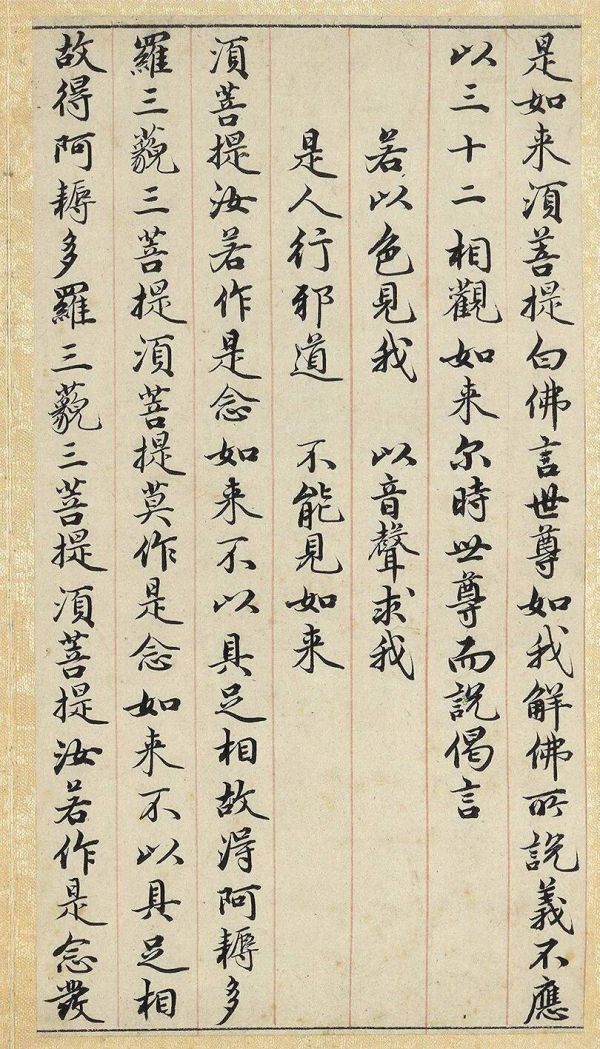 是如来須菩提白佛言世尊如我解佛所說義不應
以三十二相觀如来尔時世尊而說偈言
若以色見我 以音聲求我
是人行邪道 不能見如来
須菩提汝若作是念如来不以具足相故得阿耨多
羅三藐三菩提須菩提莫作是念如来不以具足相
故得阿耨多羅三藐三菩提須菩提汝若作是念發